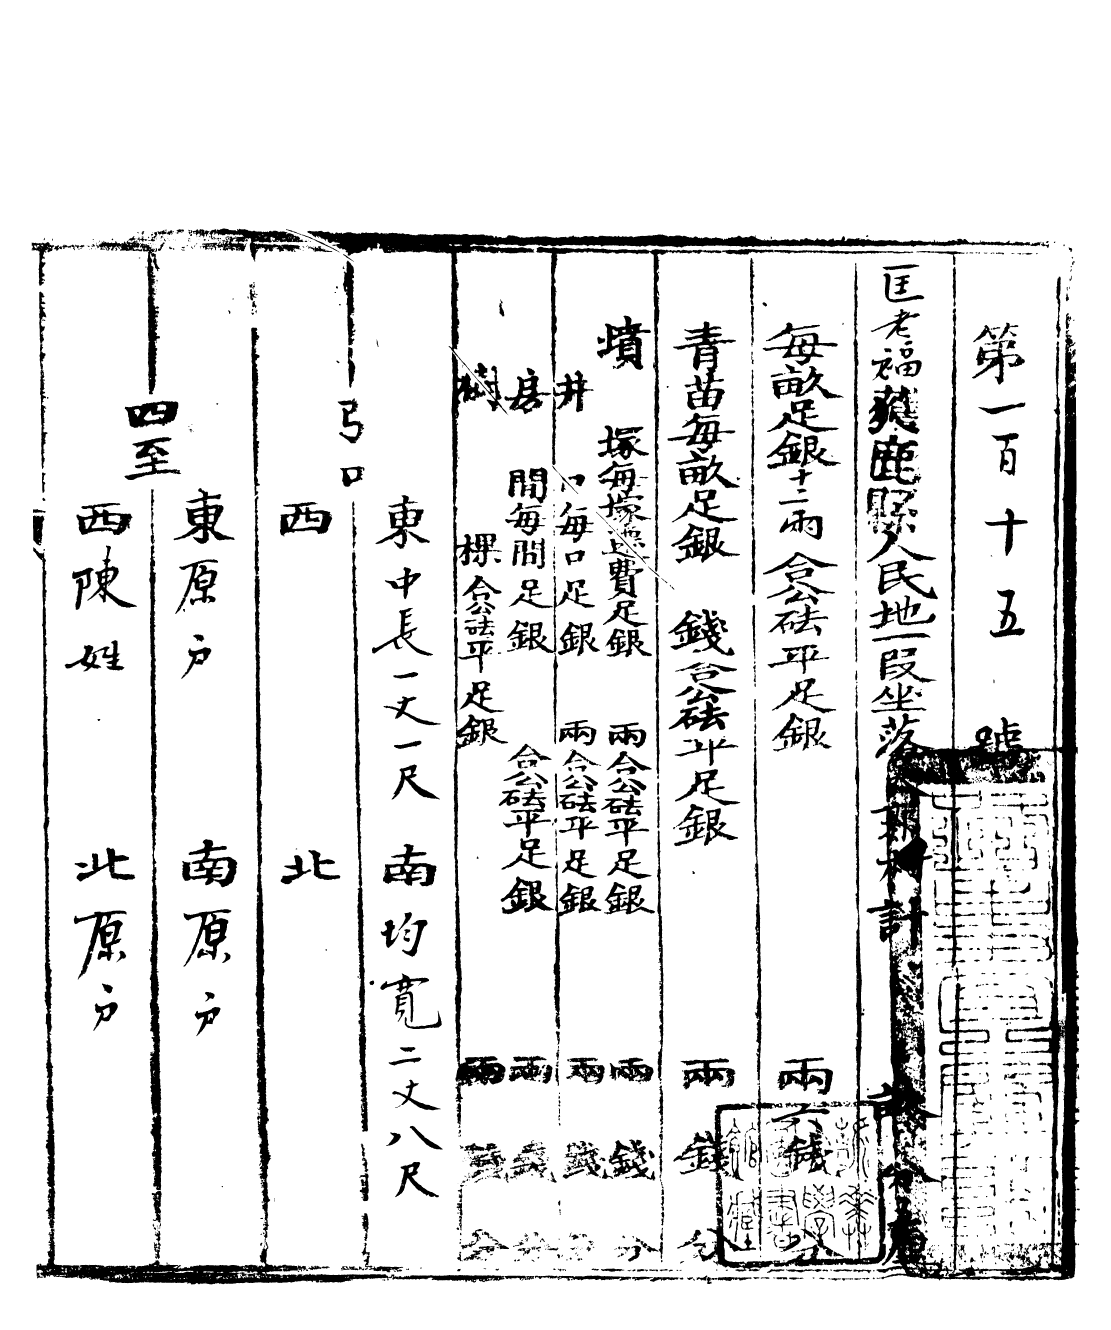 第一百十五號
匡老福獲鹿縣人民地一段坐落 村計 分
每畝足銀十二兩 合公砝平足銀 兩六錢 分
青苗每畝足銀 錢合公砝平足銀 兩 錢 分
墳 塚每塚遷費足銀 兩合公砝平足銀 兩 錢 分
井 口每口足銀 兩合公砝平足銀 兩 錢 分
房 間每間足銀 合公砝平足銀 兩 錢 分
樹 棵合公砝平足銀 兩 錢 分
弓口
東中長一丈一尺 南均寬二丈八尺
西 北
四至
東原戶 南原戶
西陳姓 北原戶